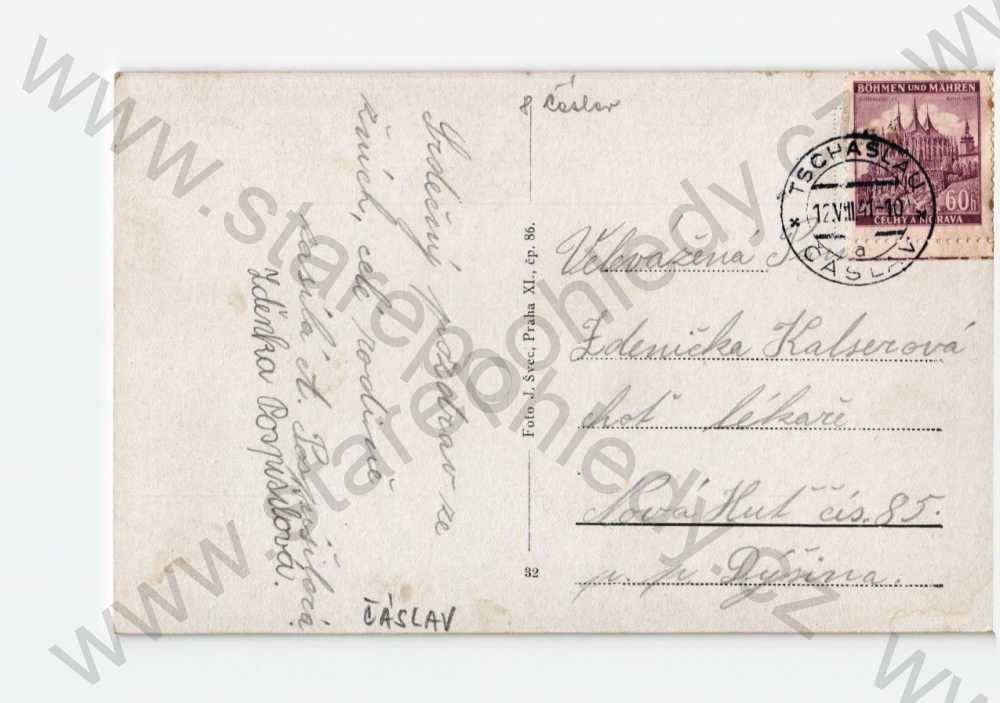 8 Čáslav
Srdečný pozdrav ze
žních, celé rodině
zasílá A. Pospíšilová
Zdeňka Pospíšilová.
ČÁSLAV
Foto J. Švec, Praha XI., čp. 86.
32
BÖHMEN UND MÄHREN
60h
ČECHY A MORAVA
TSCHASLAU
12.VIII.41-10
a
ČÁSLAV
Velevážená
Zdenička Kalserová
choť lékaře
Nová Huť čís. 85.
p. p. Dýšina.
www.starepohledy.cz
www.starepohledy.cz